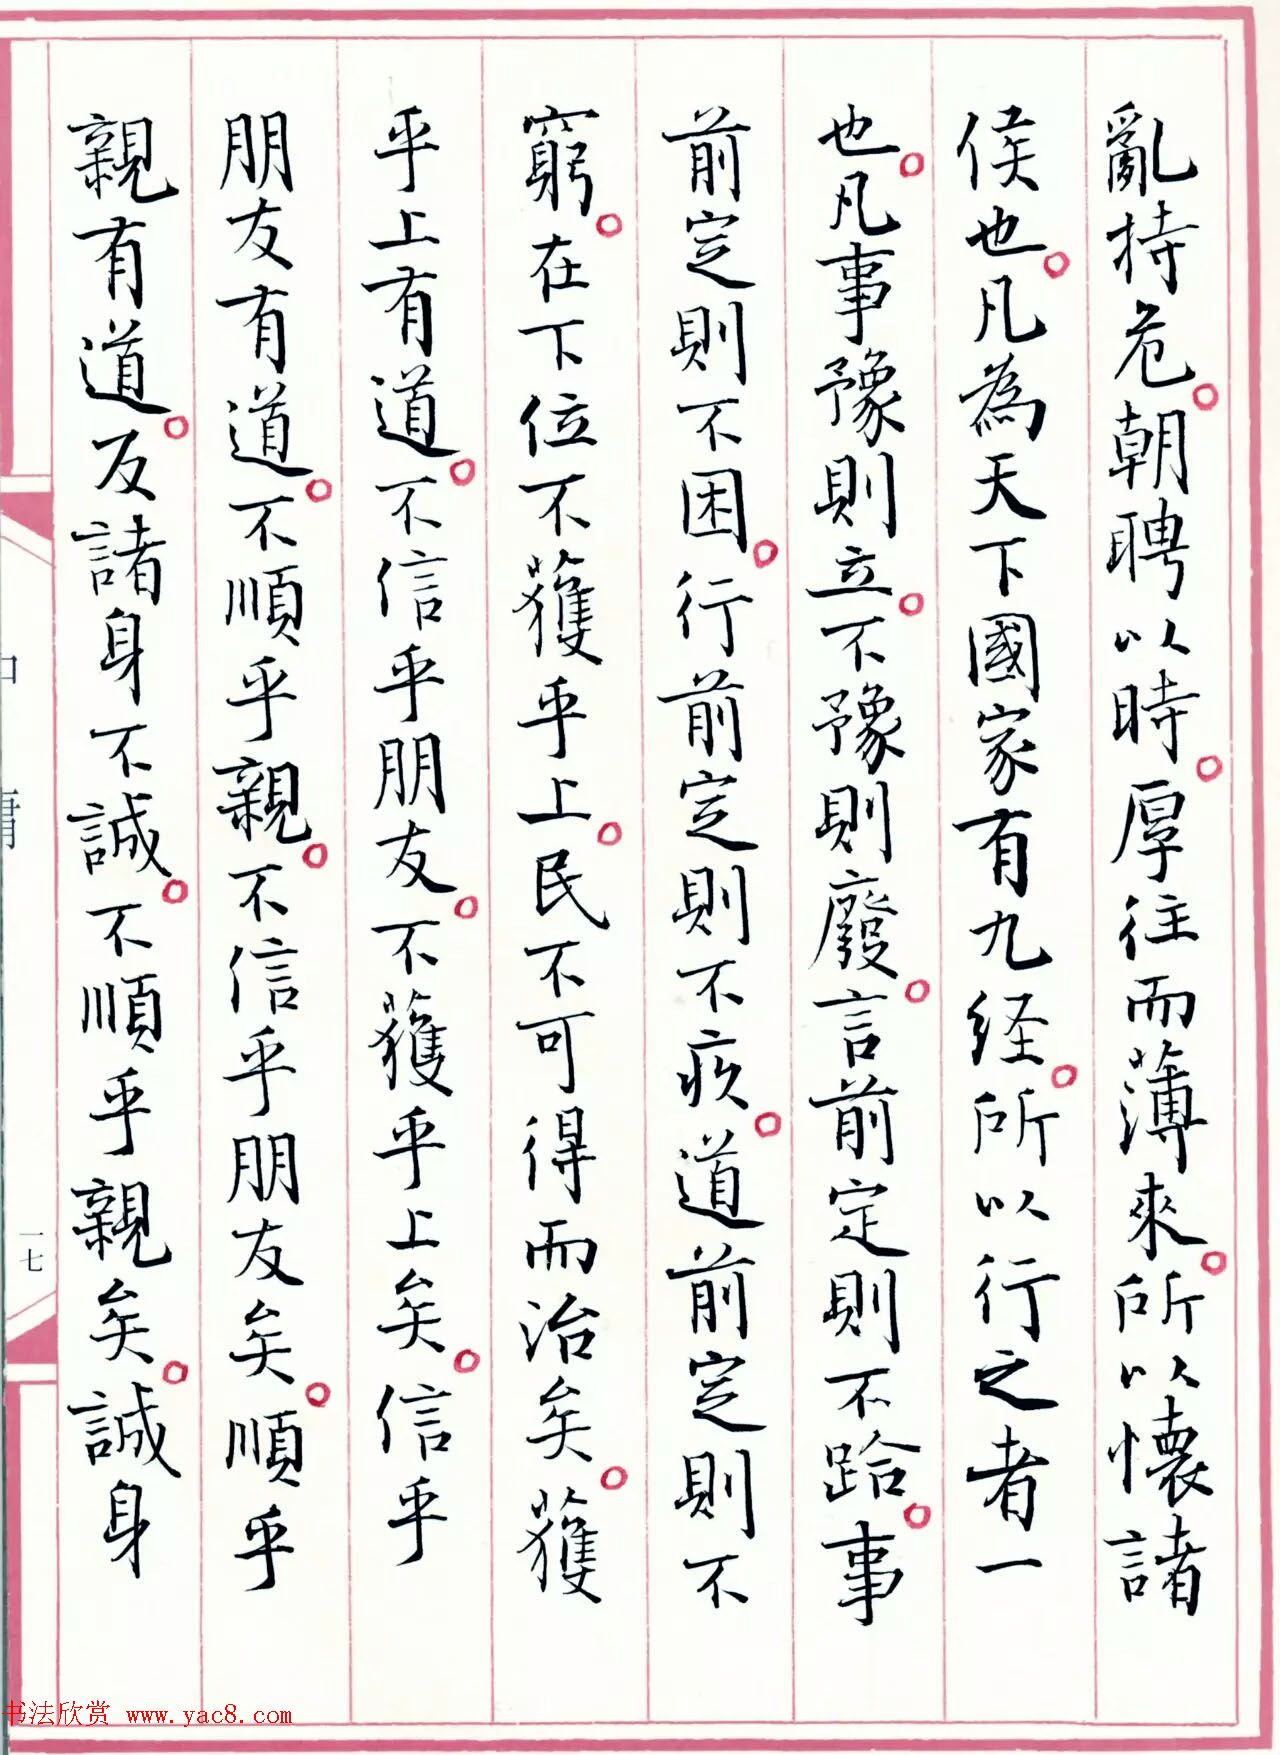 亂持危。朝聘以時。厚往而薄來。所以懷諸
侯也。凡為天下國家有九経。所以行之者一
也。凡事豫則立。不豫則廢。言前定則不跲。事
前定則不困。行前定則不疚。道前定則不
窮。在下位不獲乎上。民不可得而治矣。獲
乎上有道。不信乎朋友。不獲乎上矣。信乎
朋友有道。不順乎親。不信乎朋友矣。順乎
親有道。反諸身不誠。不順乎親矣。誠身
中庸
一七
书法欣赏 www.yac8.com